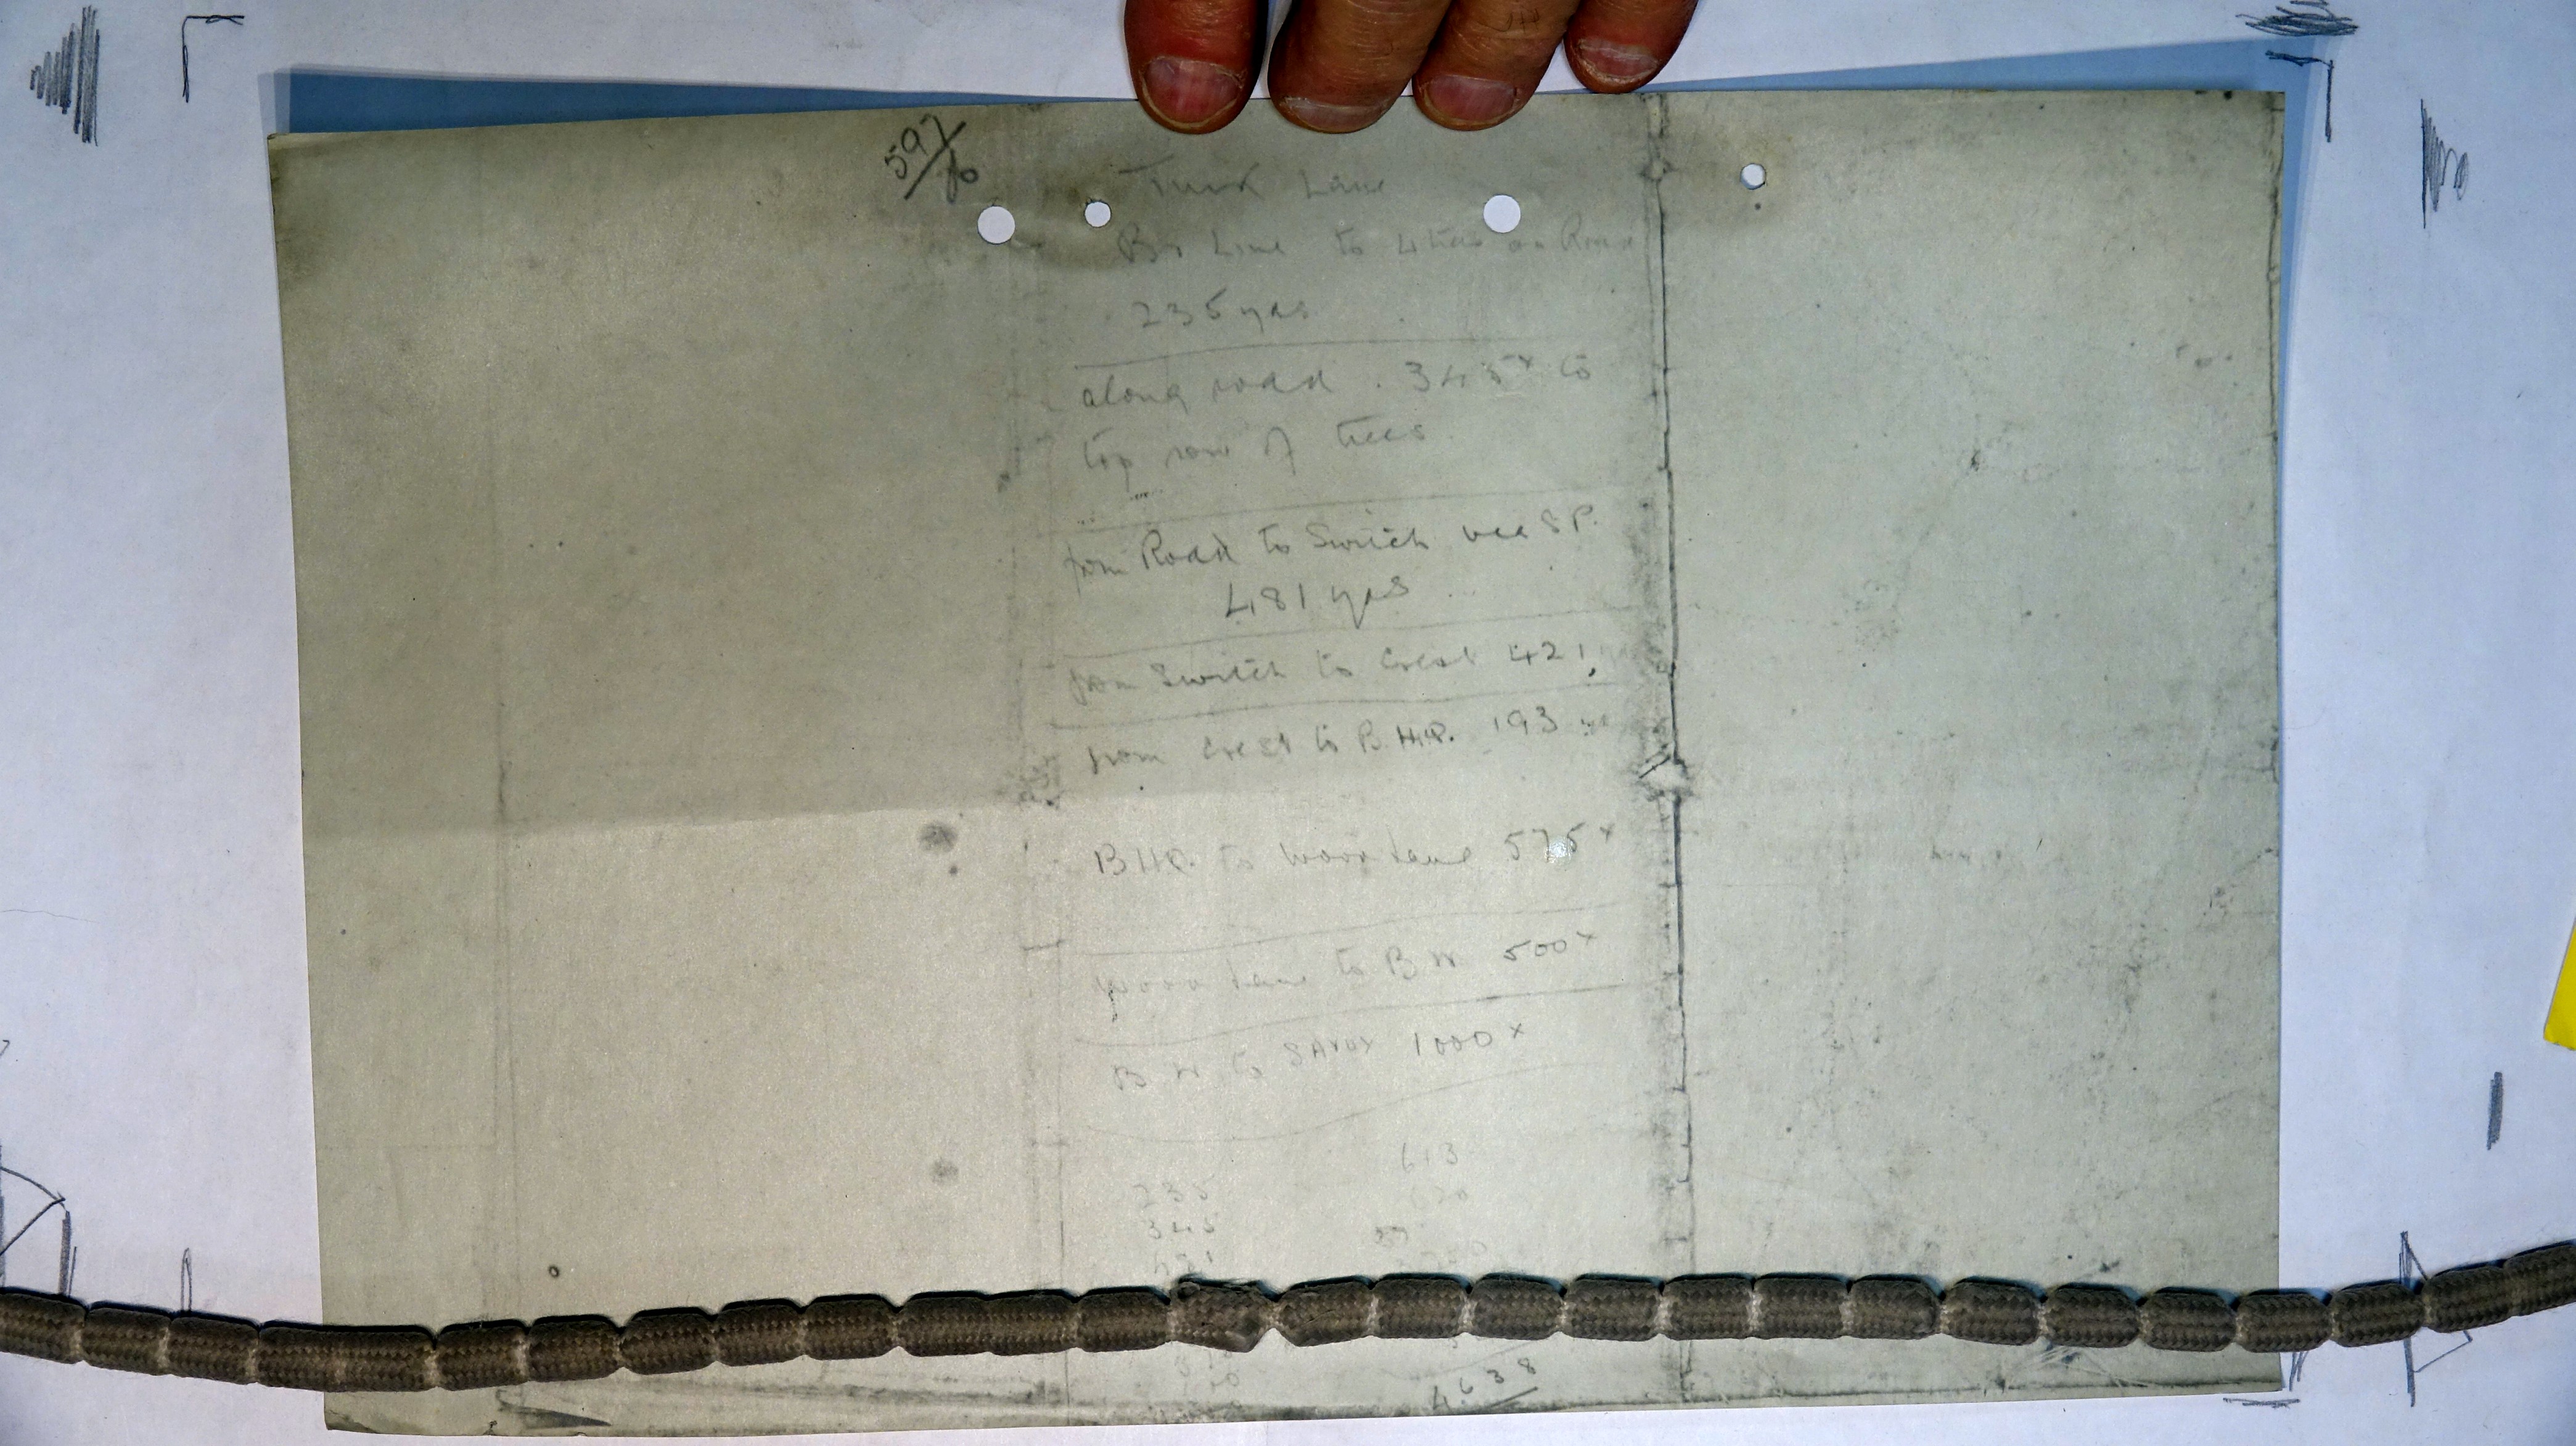 597/10
Trunk Lane
Br Line to 4 trees on Road
235 yds
along road . 345x to
top row of trees
from Road to Switch via S P.
481 yds
from Switch to Crest 421
from Crest to B.H.Q. 193
BHQ. to Wood Lane 575x
Wood Lane to B W 500x
B W to SAVOY 1000x
613
235
345
4638